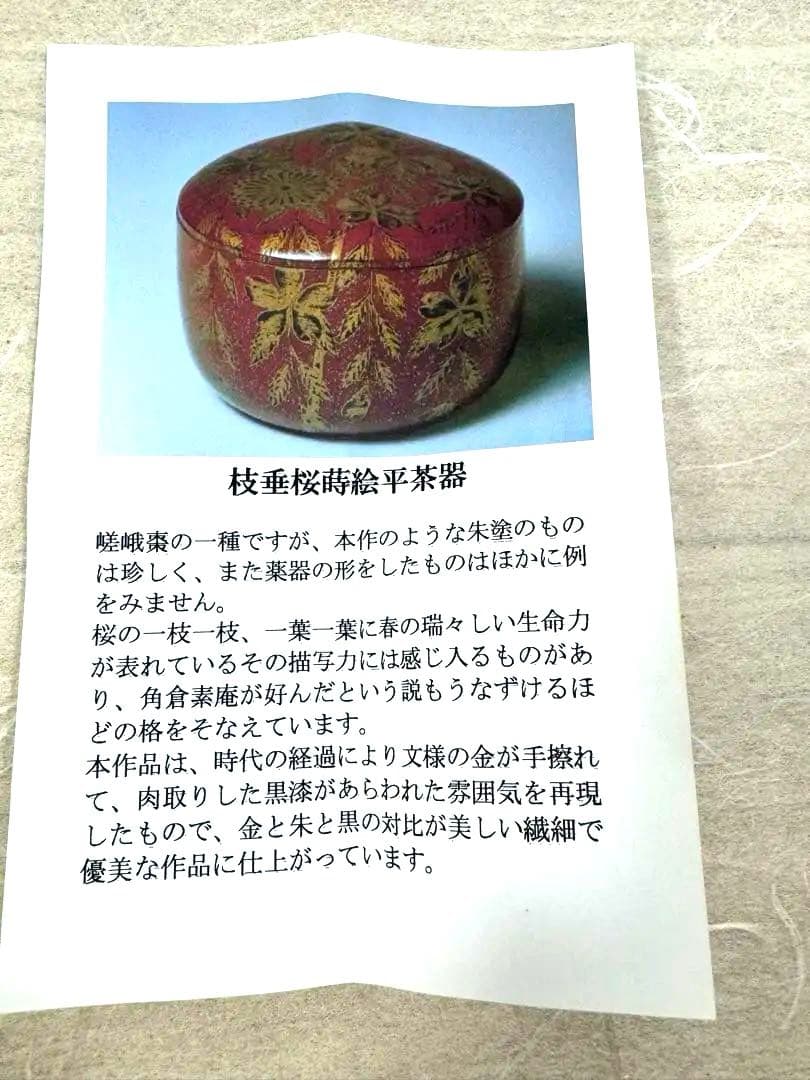 枝垂桜蒔絵平茶器
嵯峨棗の一種ですが、本作のような朱塗のもの
は珍しく、また薬器の形をしたものはほかに例
をみません。
桜の一枝一枝、一葉一葉に春の瑞々しい生命力
が表れているその描写力には感じ入るものがあ
り、角倉素庵が好んだという説もうなずけるほ
どの格をそなえています。
本作品は、時代の経過により文様の金が手擦れ
て、肉取りした黒漆があらわれた雰囲気を再現
したもので、金と朱と黒の対比が美しい繊細で
優美な作品に仕上がっています。